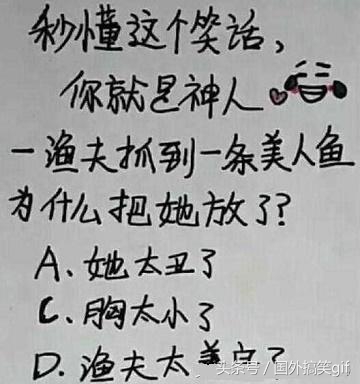 秒懂这个笑话,
你就是神人
一渔夫抓到一条美人鱼
为什么把她放了?
A、她太丑了
C、胸太小了
D、渔夫太美白了
头条号 / 国外搞笑gif